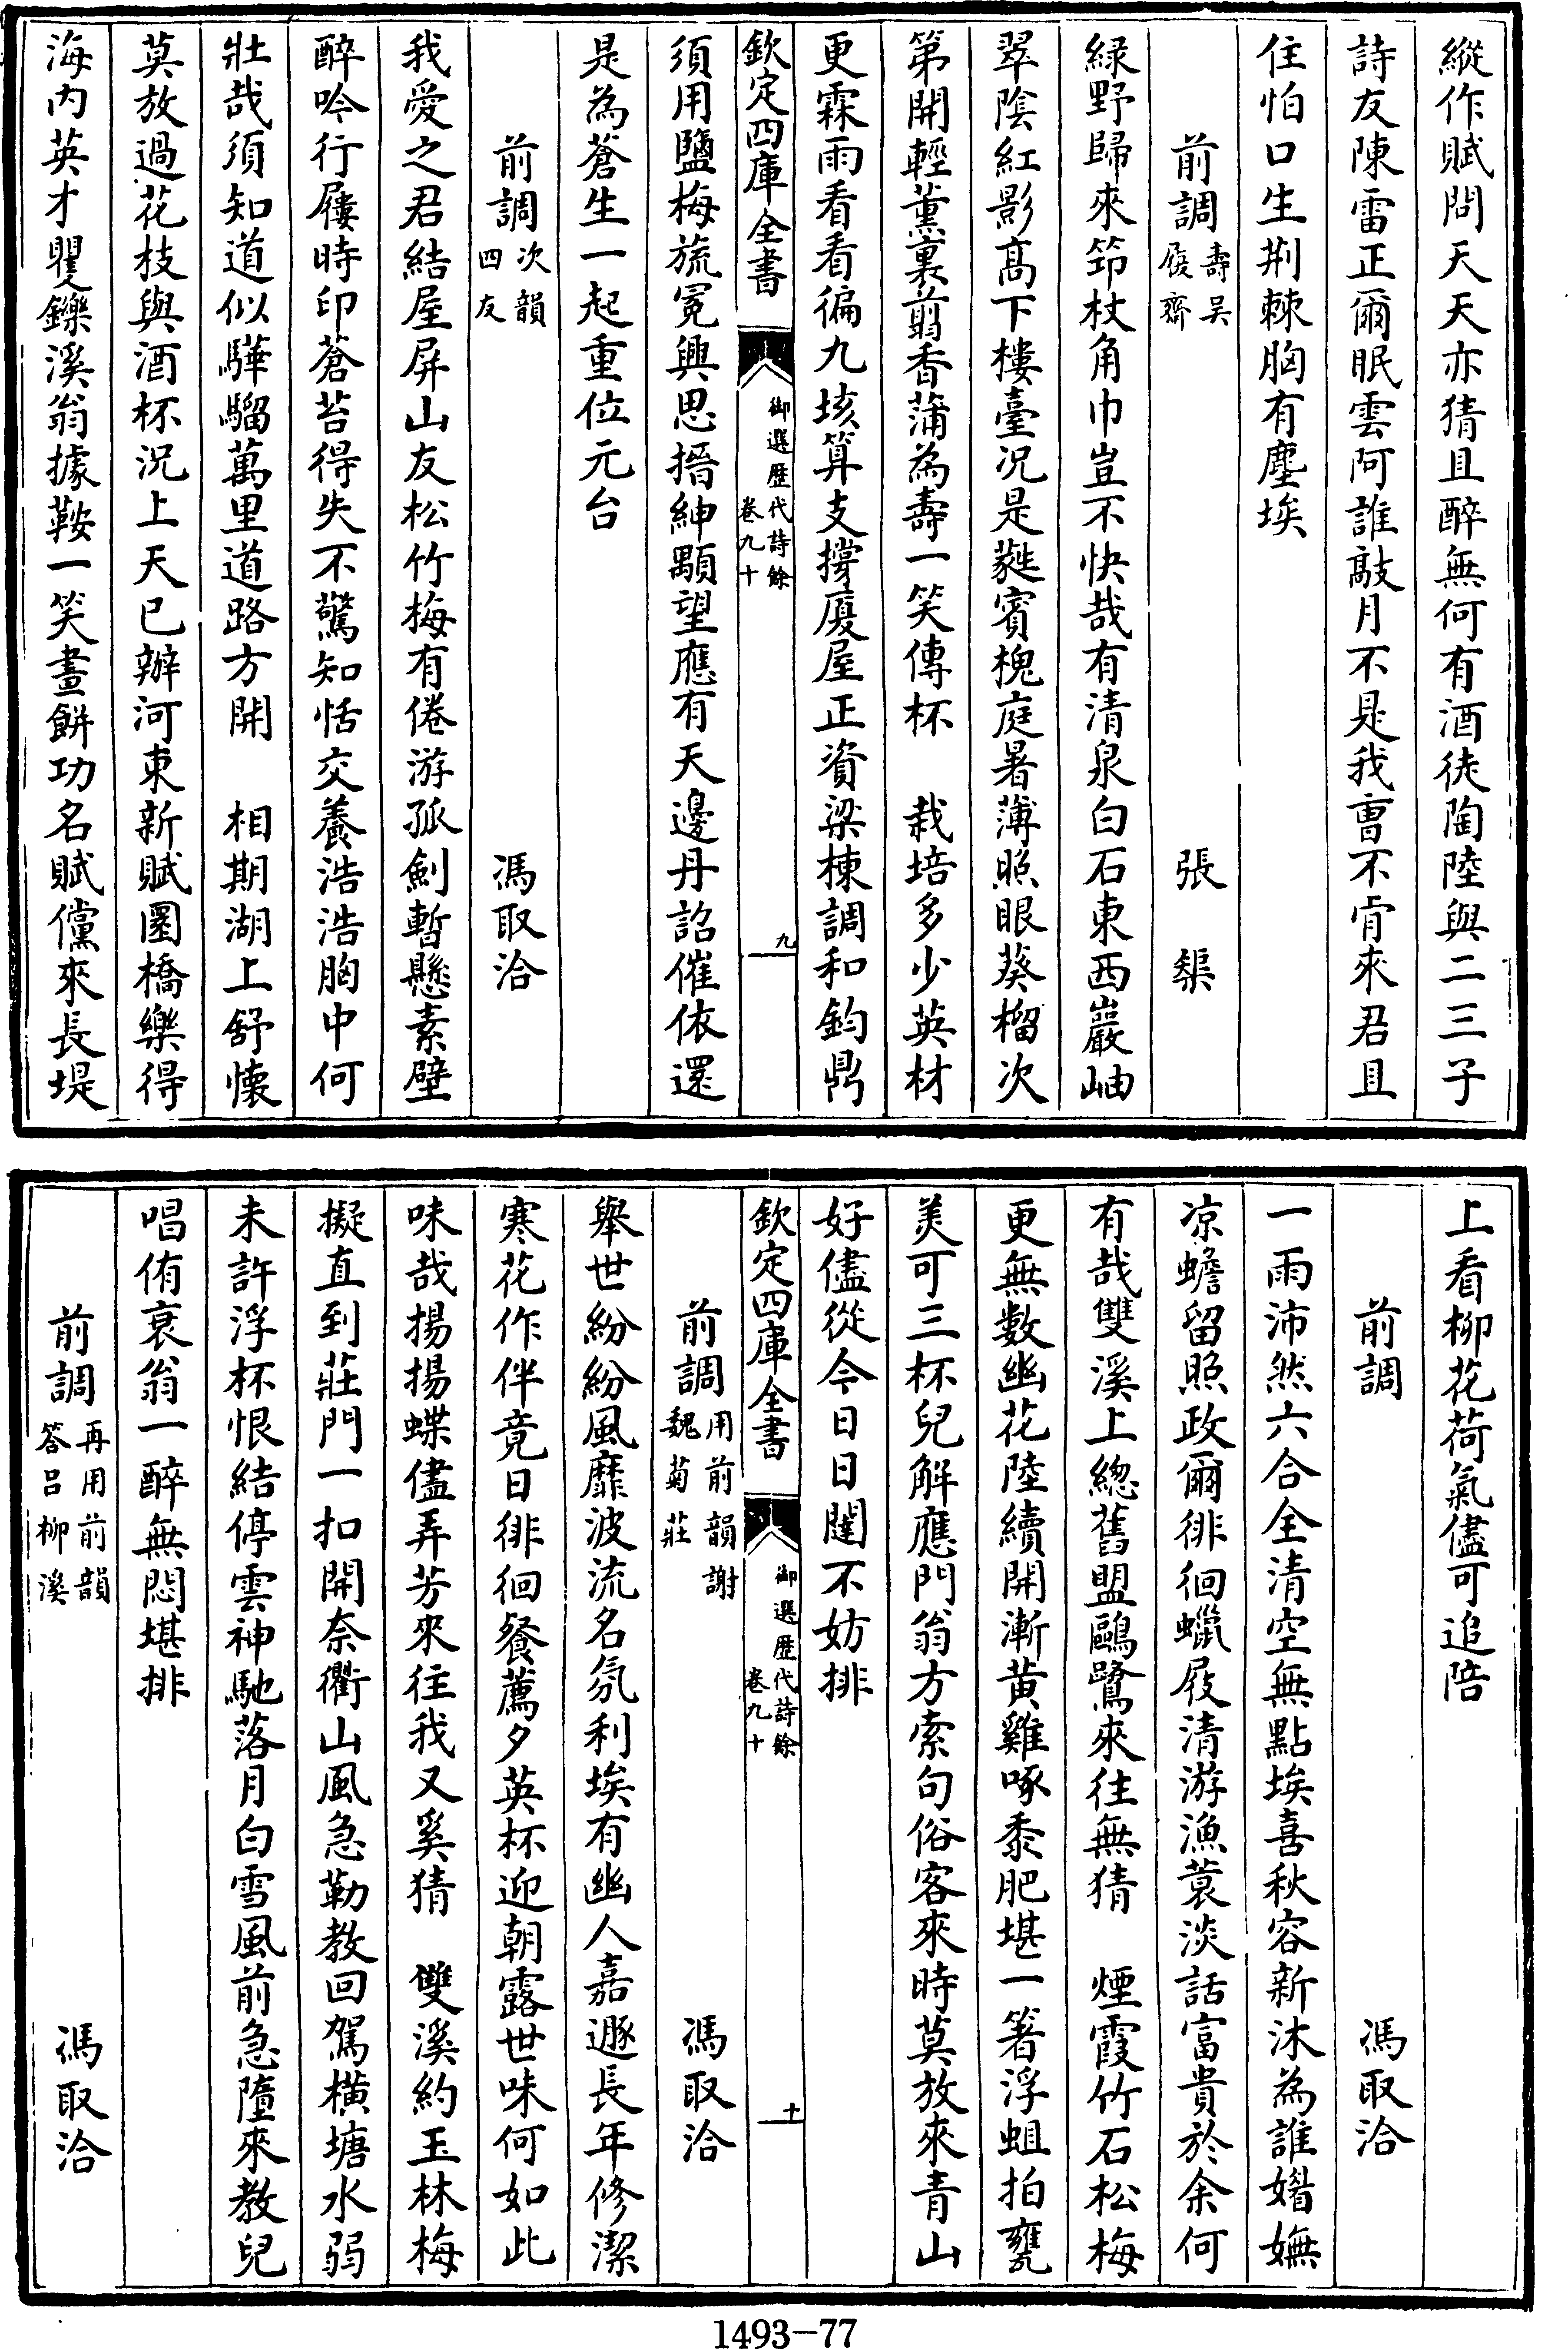 縱作賦問天天亦猜且醉無何有酒徒陶陸與二三子
詩友陳雷正爾眠雲阿誰敲月不是我曺不肯來君且
住怕口生荆棘胸有塵埃
前調壽吳履齋 張榘
緑野歸來笻杖角巾豈不快哉有清泉白石東西巖岫
翠陰紅影髙下樓臺况是蕤賓槐庭暑薄照眼葵榴次
第開輕薰裏剪香蒲為壽一笑傳杯 栽培多少英材
更霖雨看看徧九垓算支撐厦屋正資梁棟調和鈞鼎
欽定四庫全書 御選歴代詩餘卷九十 九
須用鹽梅旒冕興思搢紳顒望應有天邊丹詔催依還
是為蒼生一起重位元台
前調次韻四友 馮取洽
我愛之君結屋屏山友松竹梅有倦游孤劍暫懸素壁
醉吟行屨時印蒼苔得失不驚知恬交養浩浩胸中何
壯哉須知道似驊騮萬里道路方開 相期湖上舒懷
莫放過花枝與酒杯况上天已辦河東新賦圜橋樂得
海内英才矍鑠溪翁據鞍一笑畫餅功名賦儻來長堤
上看柳花荷氣儘可追陪
前調 馮取洽
一雨沛然六合全清空無點埃喜秋容新沐為誰媚嫵
凉蟾留照政爾徘徊蠟屐清游漁蓑淡話富貴於余何
有哉雙溪上總舊盟鷗鷺來往無猜 煙霞竹石松梅
更無數幽花陸續開漸黄雞啄黍肥堪一箸浮蛆拍甕
美可三杯兒解應門翁方索句俗客來時莫放來青山
好儘從今日日闥不妨排
欽定四庫全書 御選歴代詩餘卷九十 十
前調用前韻謝魏菊莊 馮取洽
舉世紛紛風靡波流名氛利埃有幽人嘉遯長年修潔
寒花作伴竟日徘徊餐薦夕英杯迎朝露世味何如此
味哉揚揚蝶儘弄芳來往我又奚猜 雙溪約玉林梅
擬直到莊門一扣開奈衢山風急勒教回駕横塘水弱
未許浮杯恨結停雲神馳落月白雪風前急墮來教兒
唱侑衰翁一醉無悶堪排
前調再用前韻答吕柳溪 馮取洽
1493—77